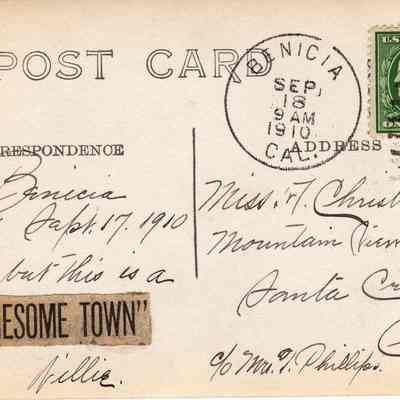 POST CARD
BENICIA
SEP.
18
9 AM
1910
CAL.
U.S.
RESPONDENCE
ADDRESS
Benicia
Sept. 17. 1910
but this is a
ESOME TOWN"
Willie.
Miss. Christ
Mountain View
Santa Cr
c/o Mrs. Phillips.